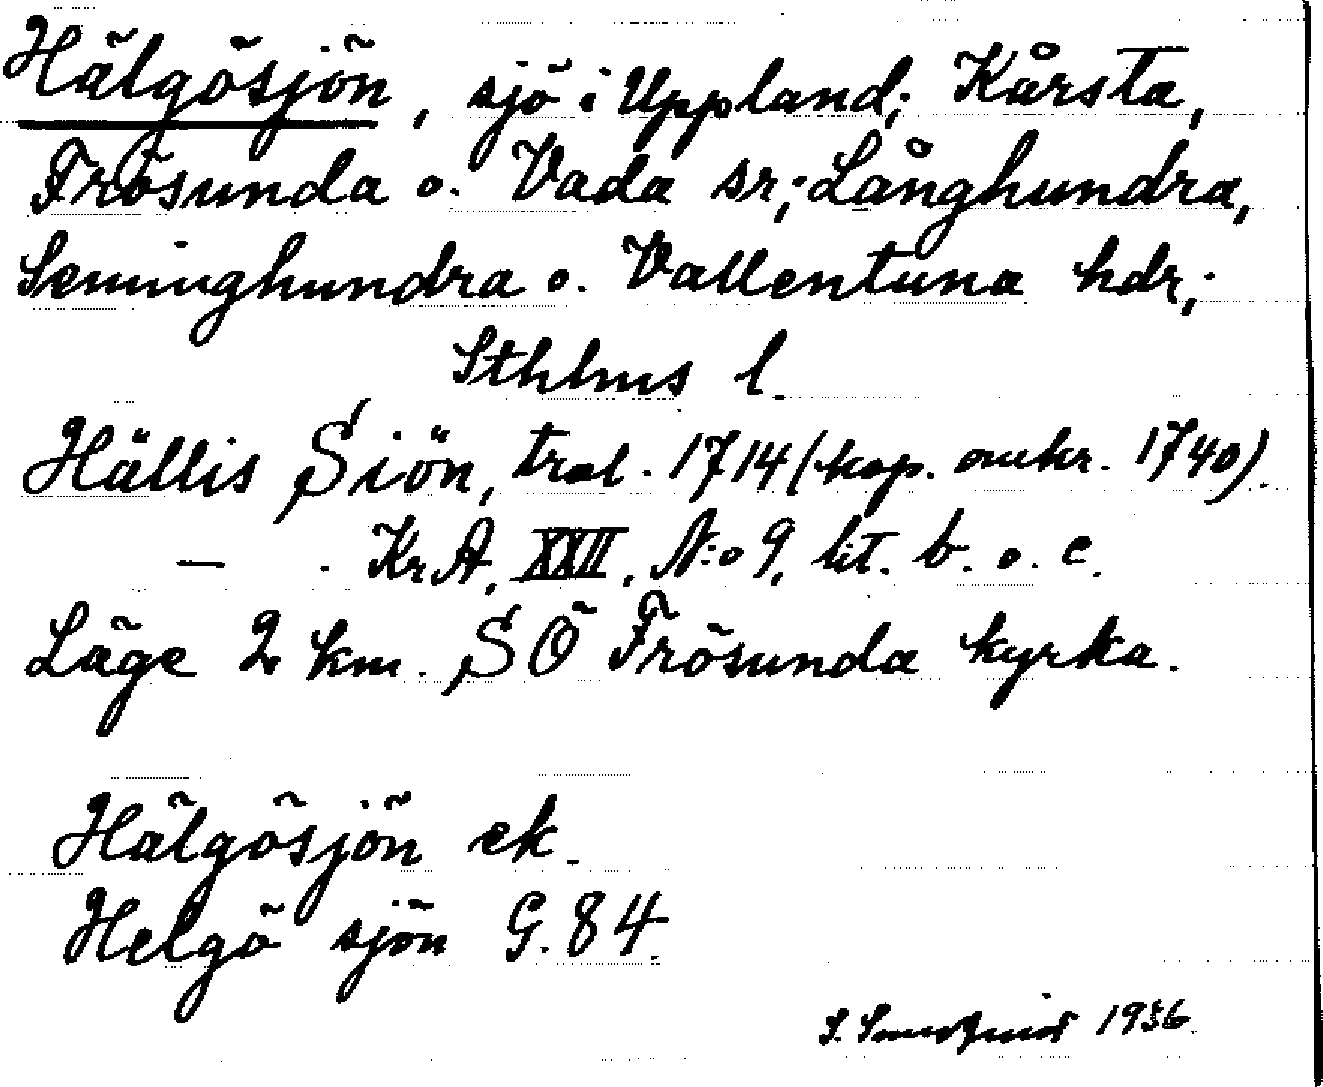 Hälgösjön, sjö i Uppland; Kårsta,
Frösunda o. Vada sr; Långhundra,
Seminghundra o. Vallentuna hdr;
Sthlms l.
Hällis Siön, trol. 1714 (kop. omkr. 1740).
— . KrA, XXII, N:o 9, lit. b. o. c.
Läge 2 km. SÖ Frösunda kyrka.
Hälgösjön ek.
Helgö sjön G. 84.
S. 1936